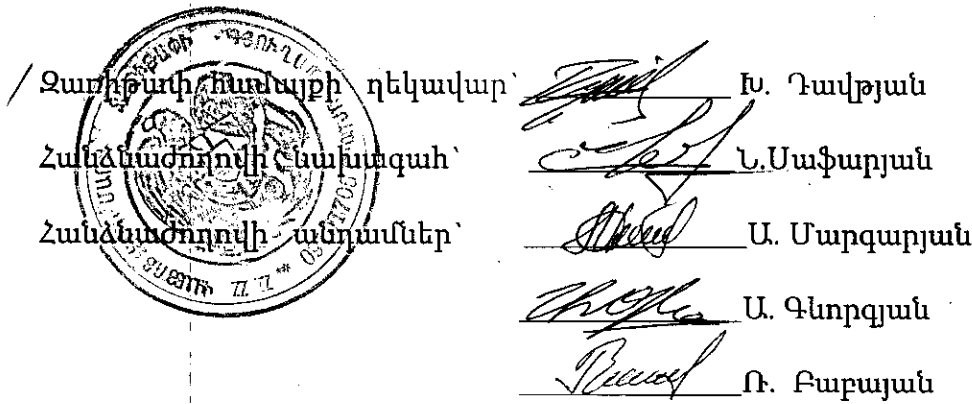 Զառիթափի համայքի ղեկավար՝ Խ. Դավթյան
Հանձնաժողովի նախագահ՝ Ն.Սաֆարյան
Հանձնաժողովի անդամներ՝ Ա. Մարգարյան
Ա. Գևորգյան
Ռ. Բաբայան